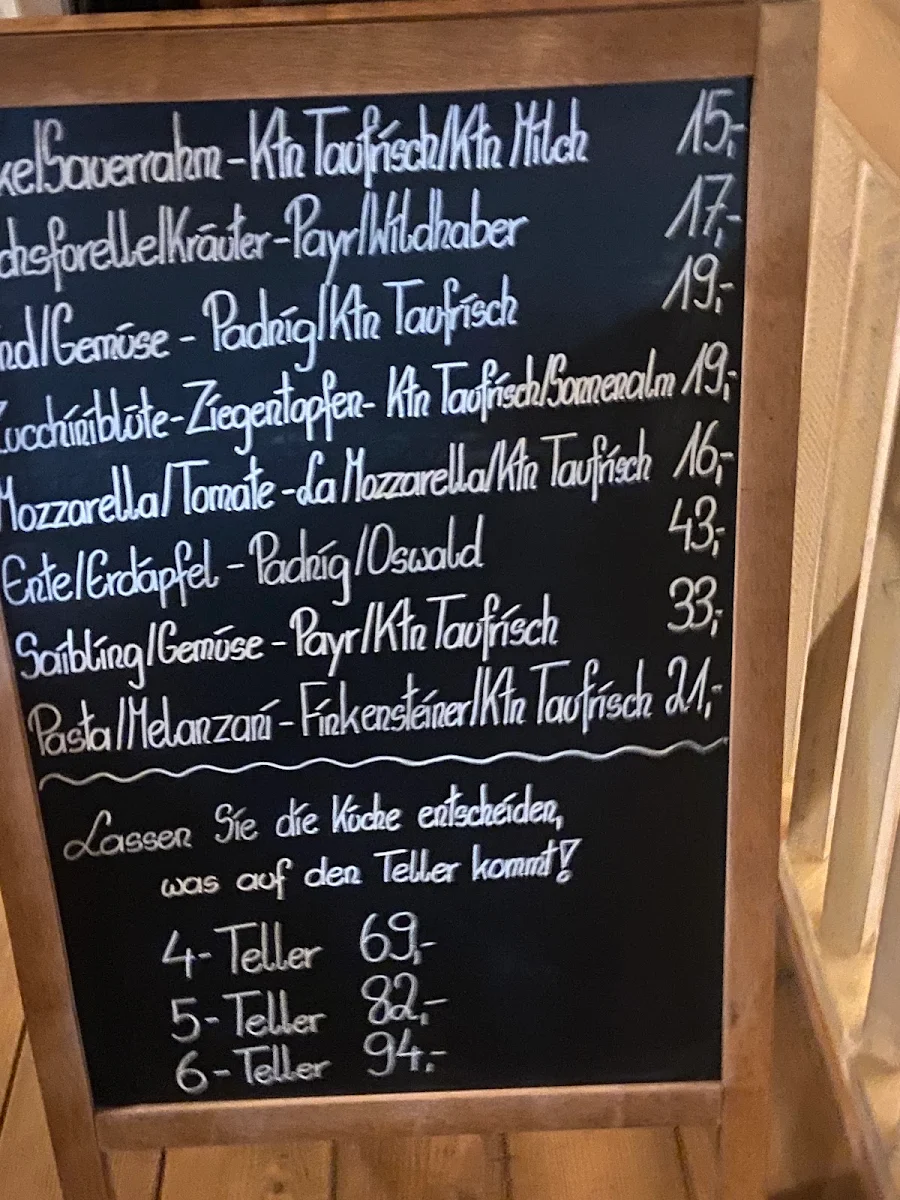 kel/Sauerrahm - Ktn Taufrisch/Ktn Milch 15,-
chsforelle/Kräuter - Payr/Wildhaber 17,-
nd/Gemüse - Padnig/Ktn Taufrisch 19,-
Zucchiniblüte - Ziegentopfen - Ktn Taufrisch/Sonnenalm 19,-
Mozzarella/Tomate - La Mozzarella/Ktn Taufrisch 16,-
Ente/Erdäpfel - Padnig/Oswald 43,-
Saibling/Gemüse - Payr/Ktn Taufrisch 33,-
Pasta/Melanzani - Finkensteiner/Ktn Taufrisch 21,-
Lassen Sie die Küche entscheiden,
was auf den Teller kommt!
4-Teller 69,-
5-Teller 82,-
6-Teller 94,-